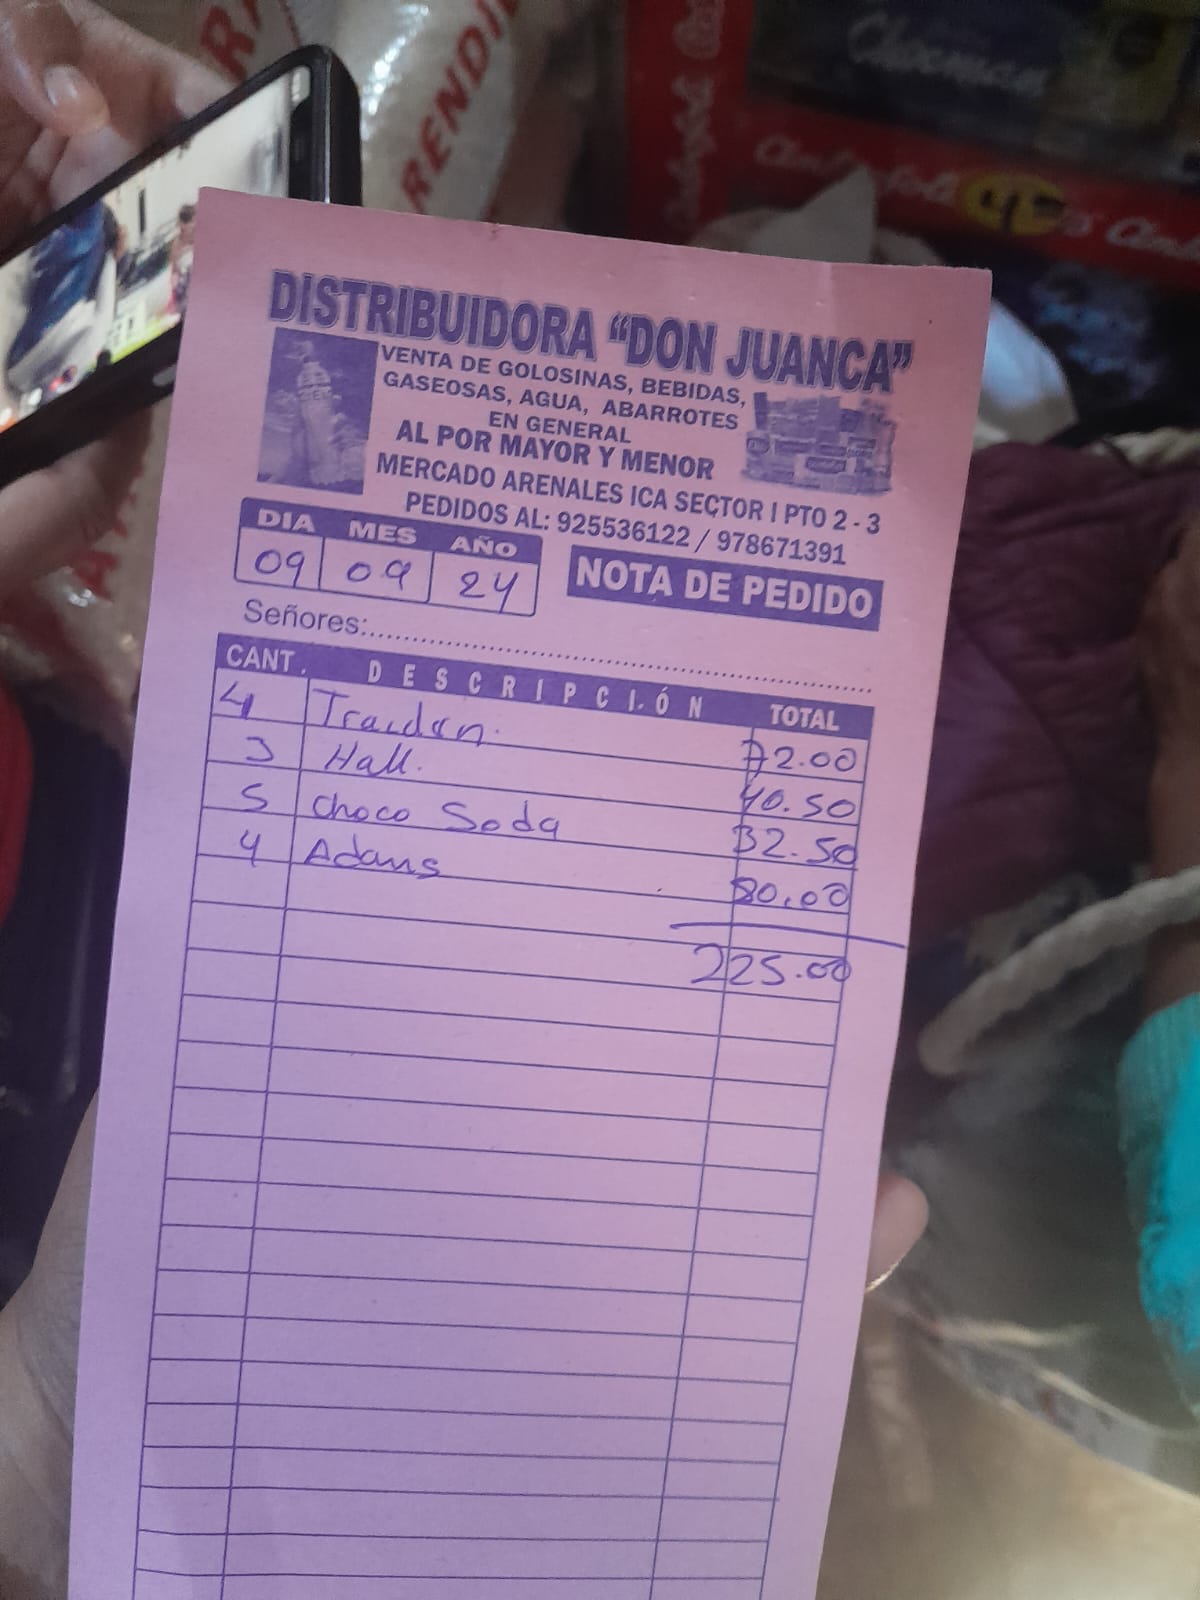 RENDI
DISTRIBUIDORA “DON JUANCA”
VENTA DE GOLOSINAS, BEBIDAS,
GASEOSAS, AGUA, ABARROTES
EN GENERAL
AL POR MAYOR Y MENOR
MERCADO ARENALES ICA SECTOR I PTO 2 - 3
PEDIDOS AL: 925536122 / 978671391
DIA MES AÑO
09 09 24
NOTA DE PEDIDO
Señores:
CANT. DESCRIPCIÓN TOTAL
4 72.00
3 Hall. 40.50
5 Choco Soda 32.50
4 Adams 80.00
225.00